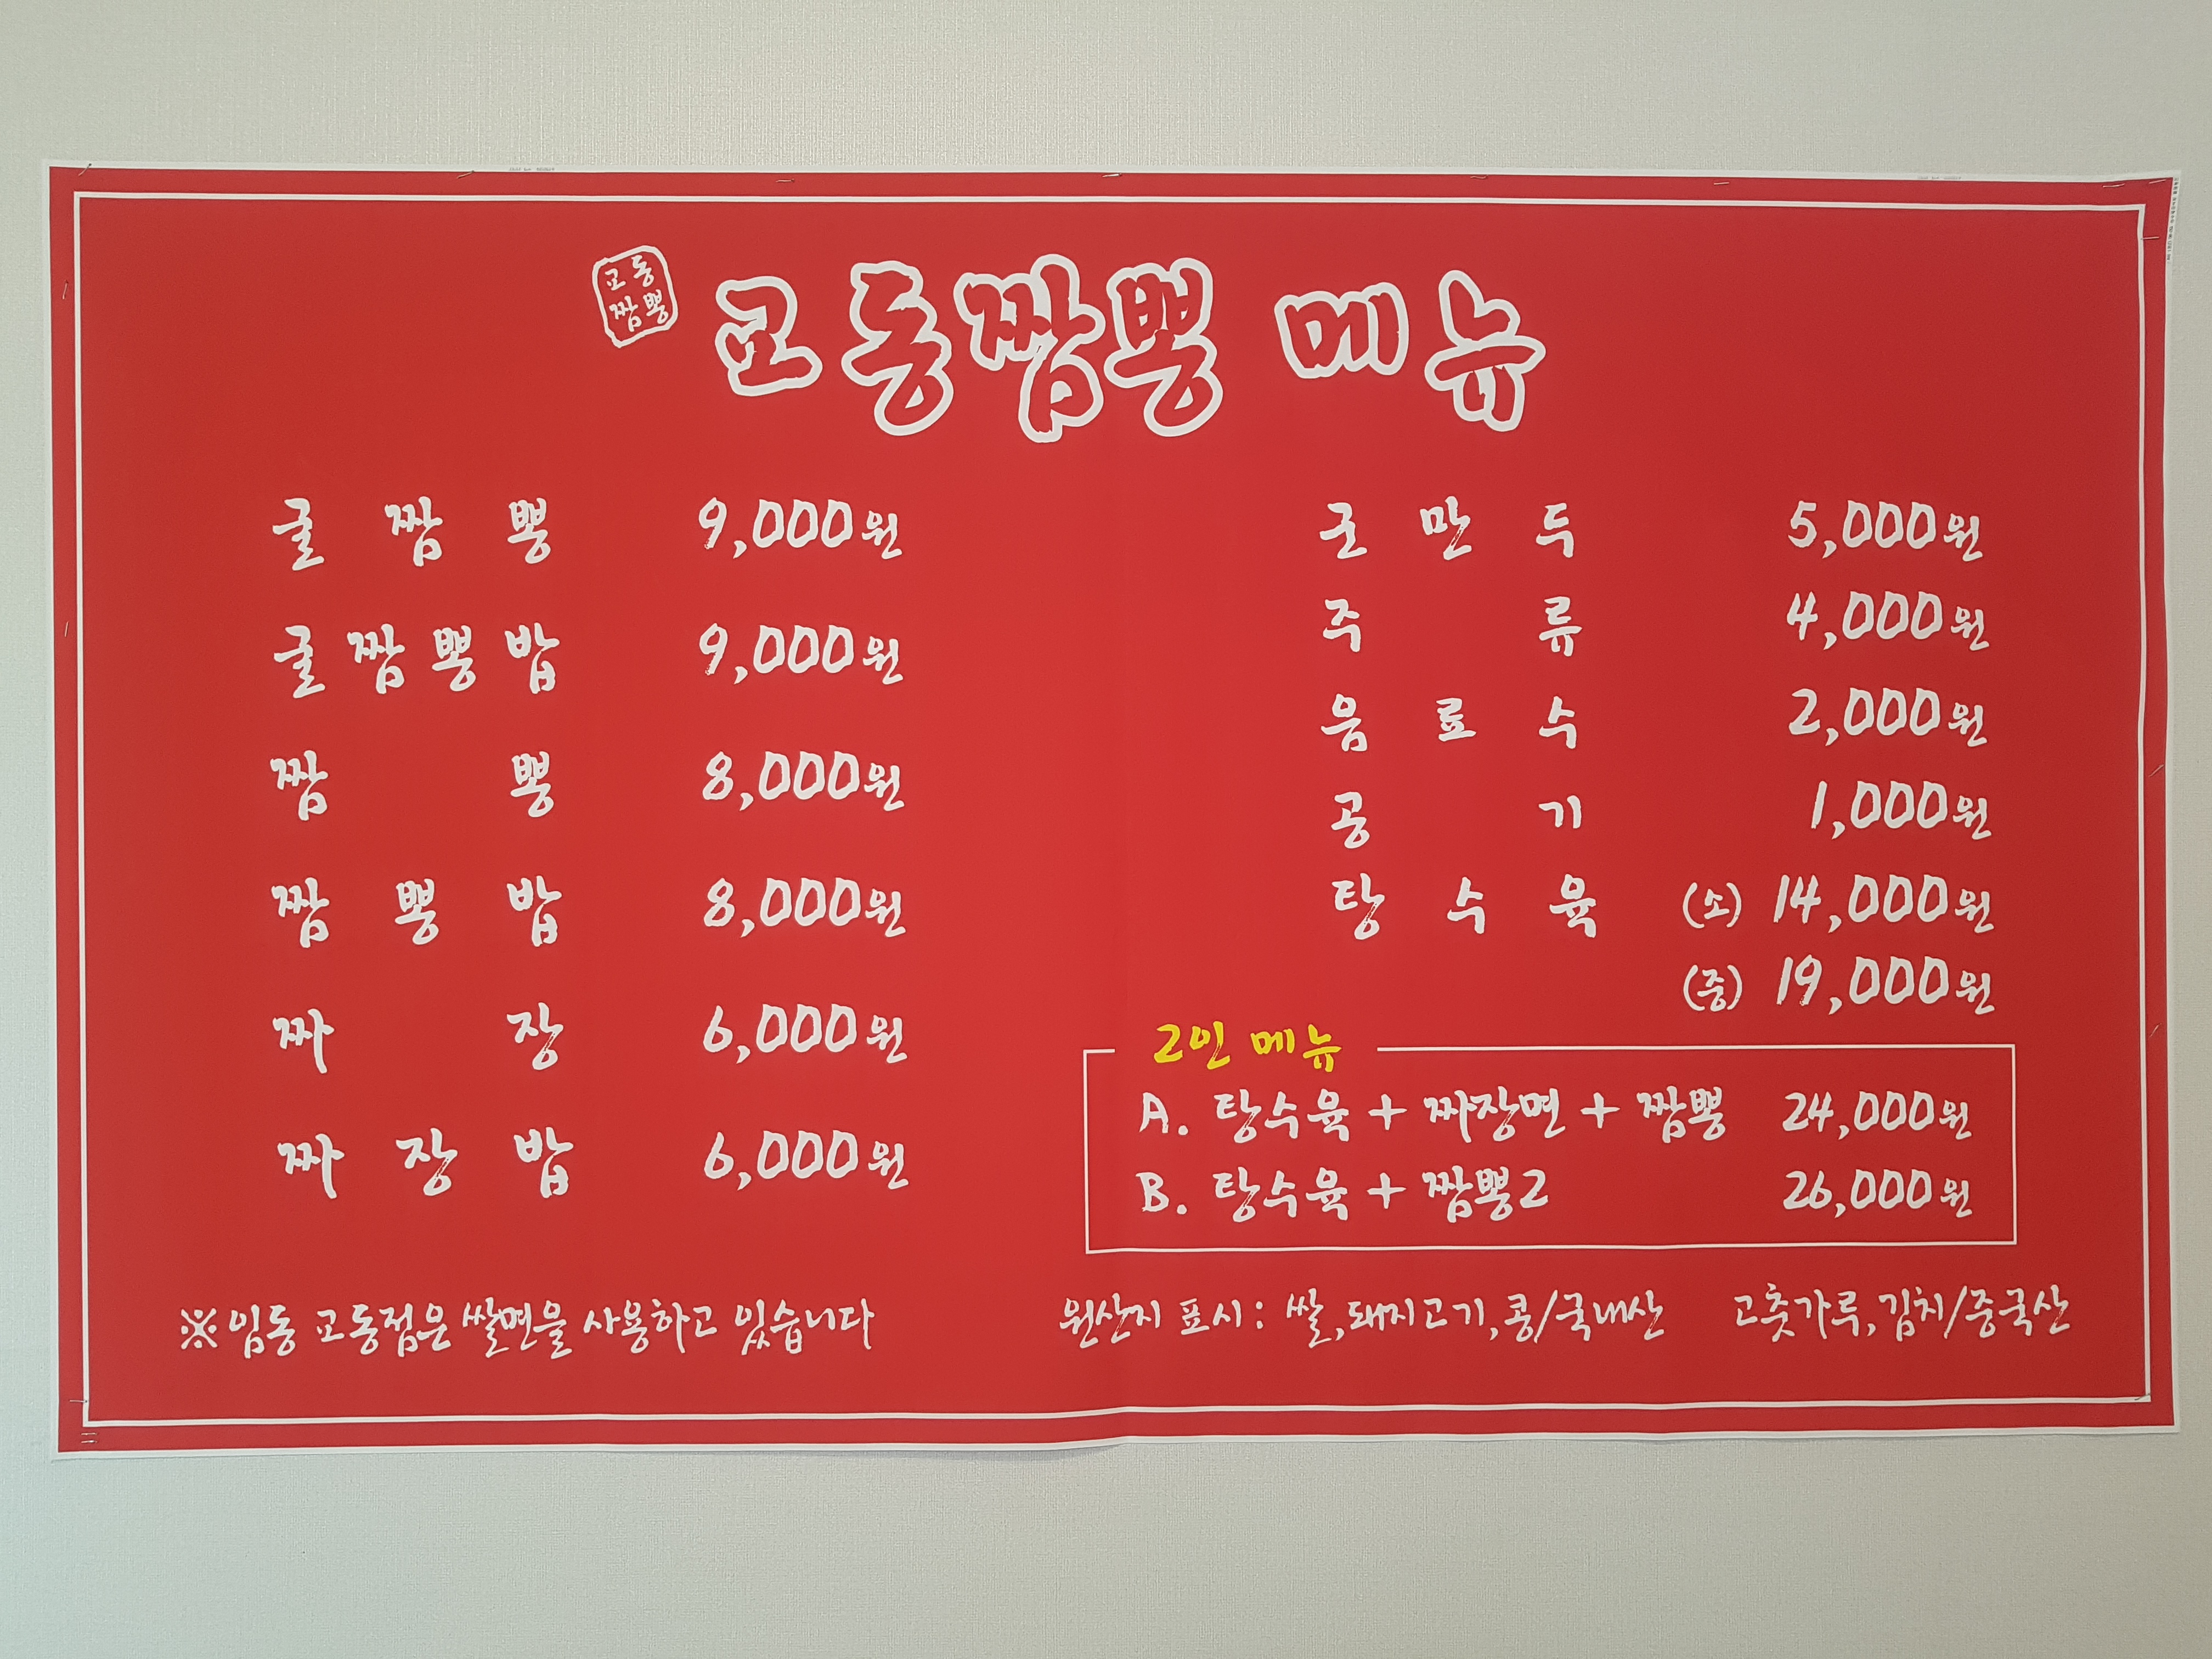 교동
짬뽕
교동짬뽕 메뉴
굴짬뽕 9,000원
굴짬뽕밥 9,000원
짬뽕 8,000원
짬뽕밥 8,000원
짜장 6,000원
짜장밥 6,000원
군만두 5,000원
주류 4,000원
음료수 2,000원
공기 1,000원
탕수육 (소) 14,000원
(중) 19,000원
2인 메뉴
A. 탕수육 + 짜장면 + 짬뽕 24,000원
B. 탕수육 + 짬뽕2 26,000원
※임동 교동점은 쌀면을 사용하고 있습니다
원산지 표시 : 쌀,돼지고기,콩/국내산 고춧가루,김치/중국산